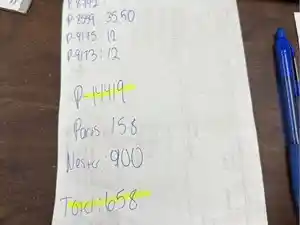 P-8559 35.50
P-9175: 12
P-9173: 12
P-14419
Paris: 158
900
Total: 658